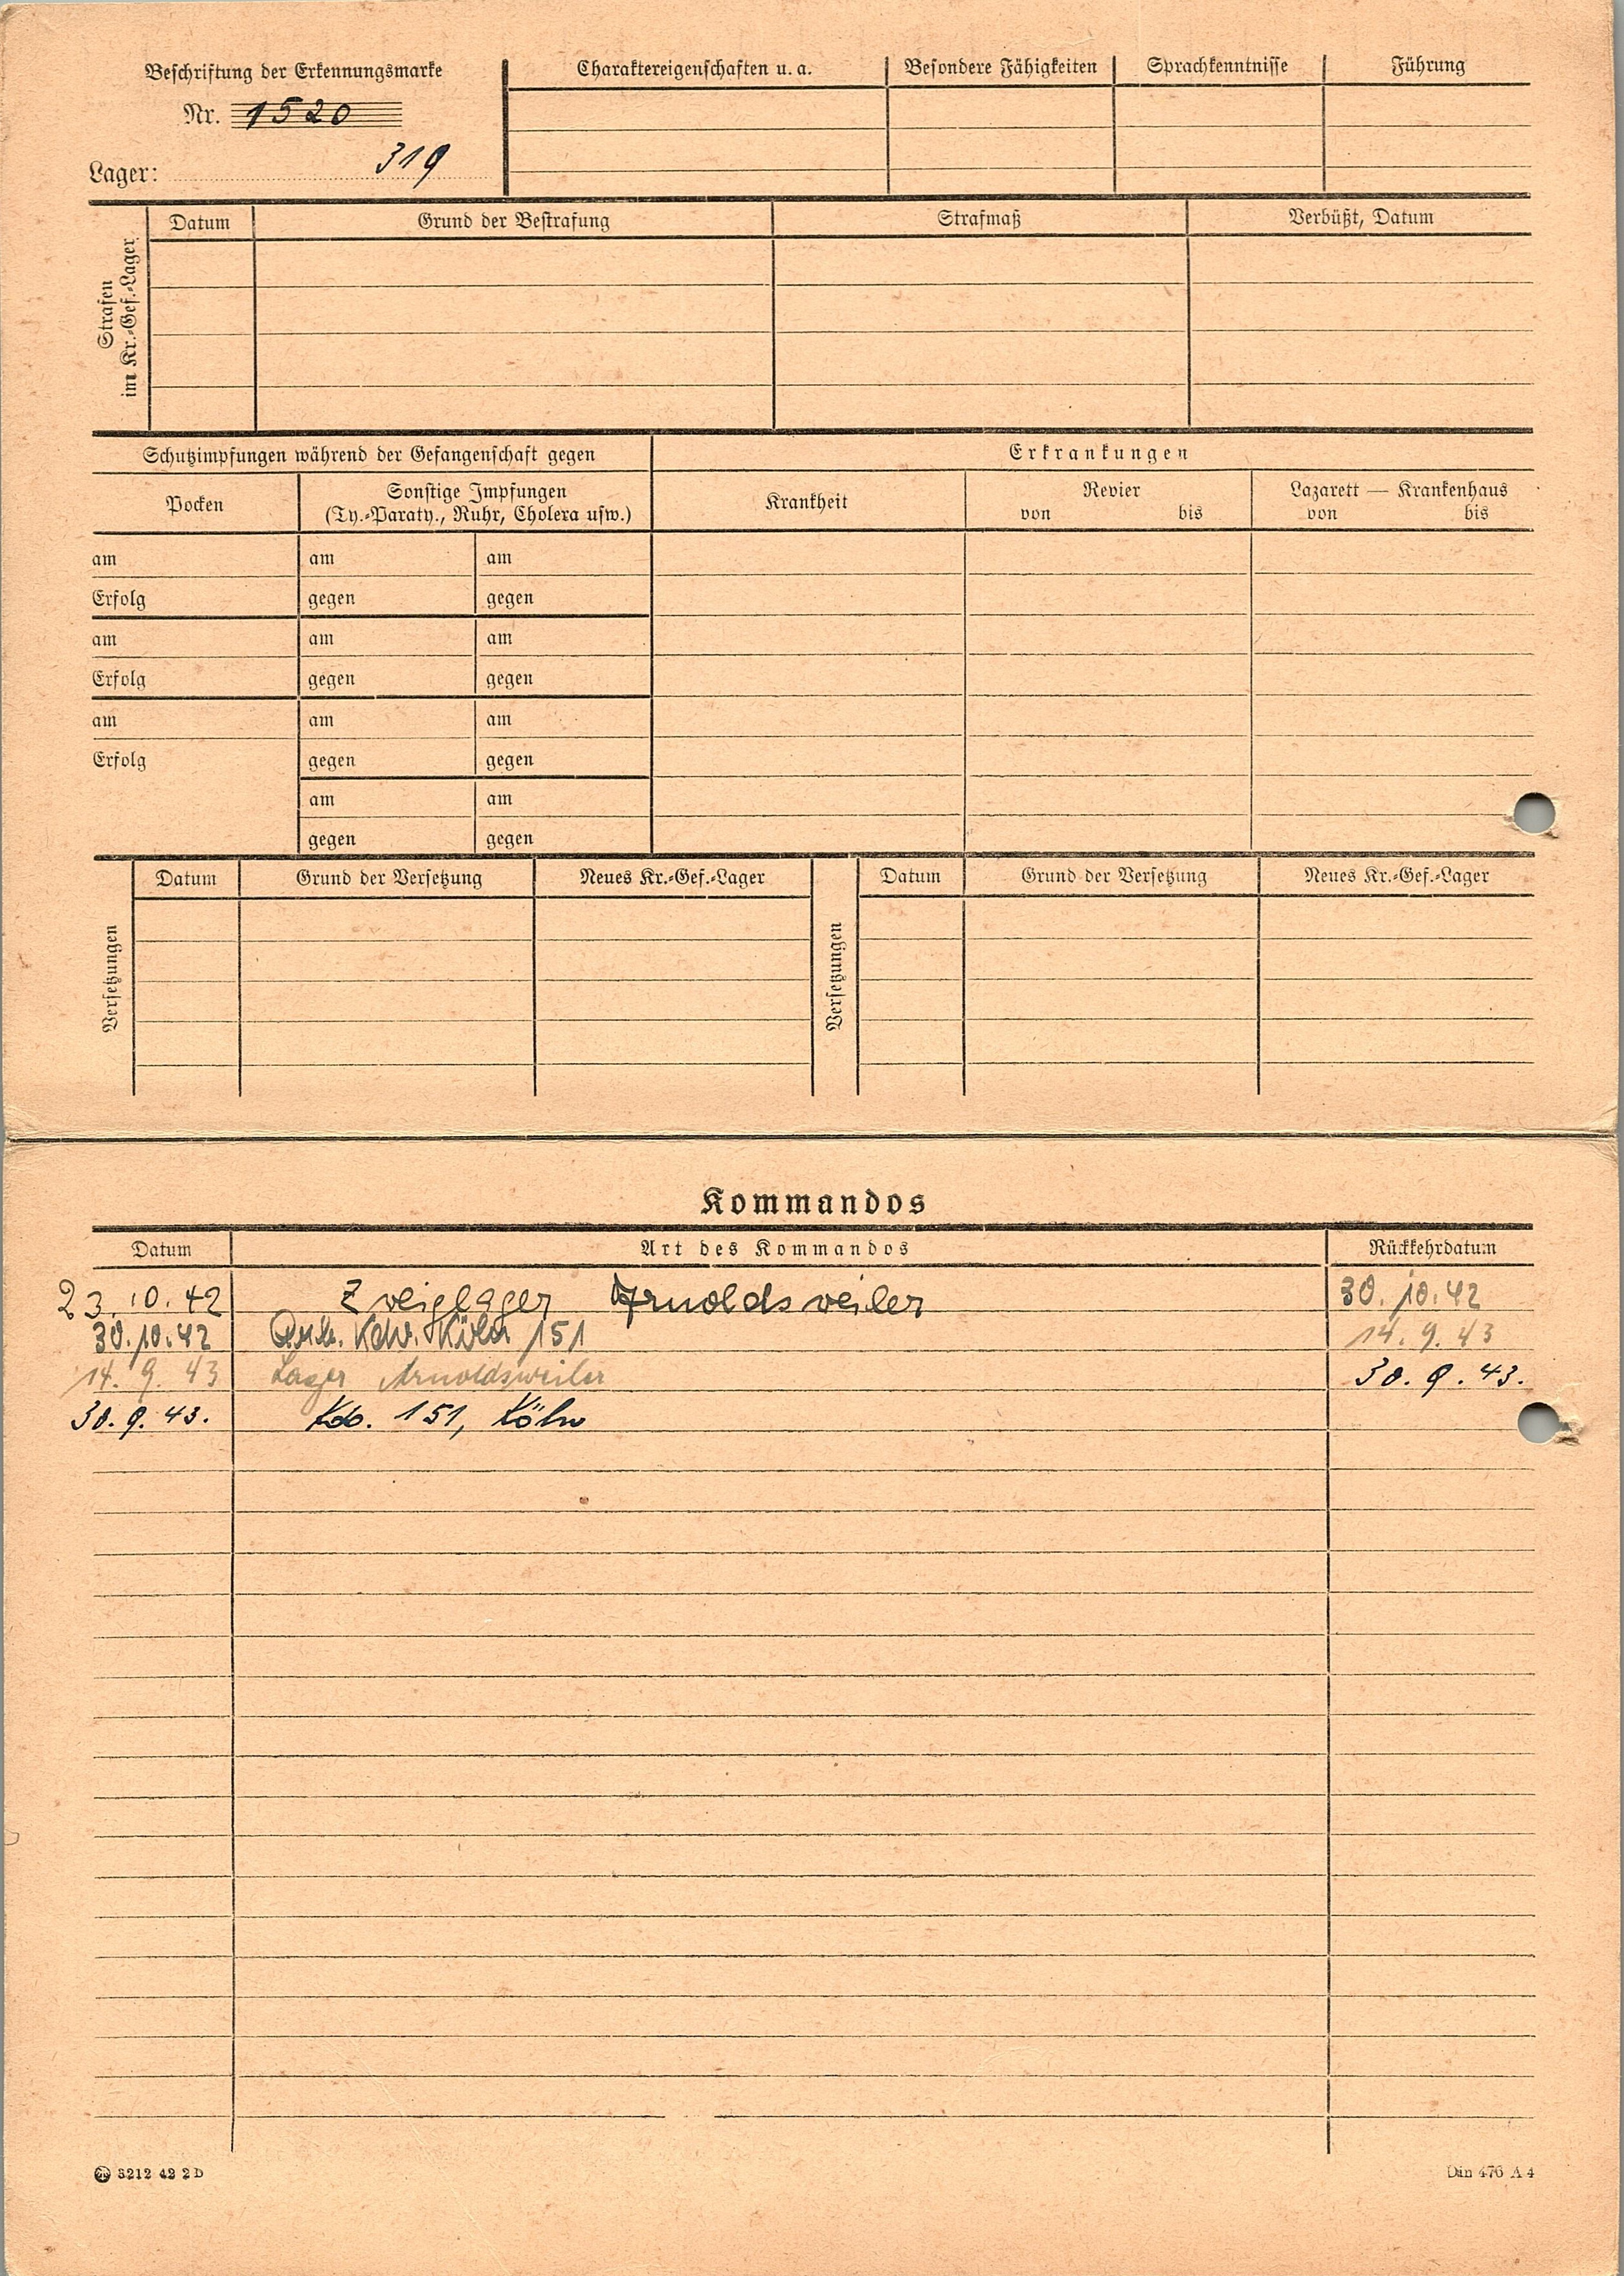 Beschriftung der Erkennungsmarke
Nr. 1520
Lager: 319
Charaktereigenschaften u. a. Besondere Fähigkeiten Sprachkenntnisse Führung
Strafen
im Kr.-Gef.-Lager
Datum Grund der Bestrafung Strafmaß Verbüßt, Datum
Schutzimpfungen während der Gefangenschaft gegen Erkrankungen
Pocken Sonstige Impfungen
(Ty.-Paraty., Ruhr, Cholera usw.)
Krankheit Revier Lazarett — Krankenhaus
von bis von bis
am am am
Erfolg gegen gegen
am am am
Erfolg gegen gegen
am am am
Erfolg gegen gegen
am am
gegen gegen
Versetzungen
Datum Grund der Versetzung Neues Kr.-Gef.-Lager
Versetzungen
Datum Grund der Versetzung Neues Kr.-Gef.-Lager
Kommandos
Datum Art des Kommandos Rückkehrdatum
23.10.42 Zweiglager Arnoldsweiler 30.10.42
30.10.42 Arb. Kdo. Köln 151 14. 9. 43
14. 9. 43 Lager Arnoldsweiler 30. 9. 43.
30. 9. 43. Kdo. 151, Köln
3212 42 2 D
Din 476 A 4